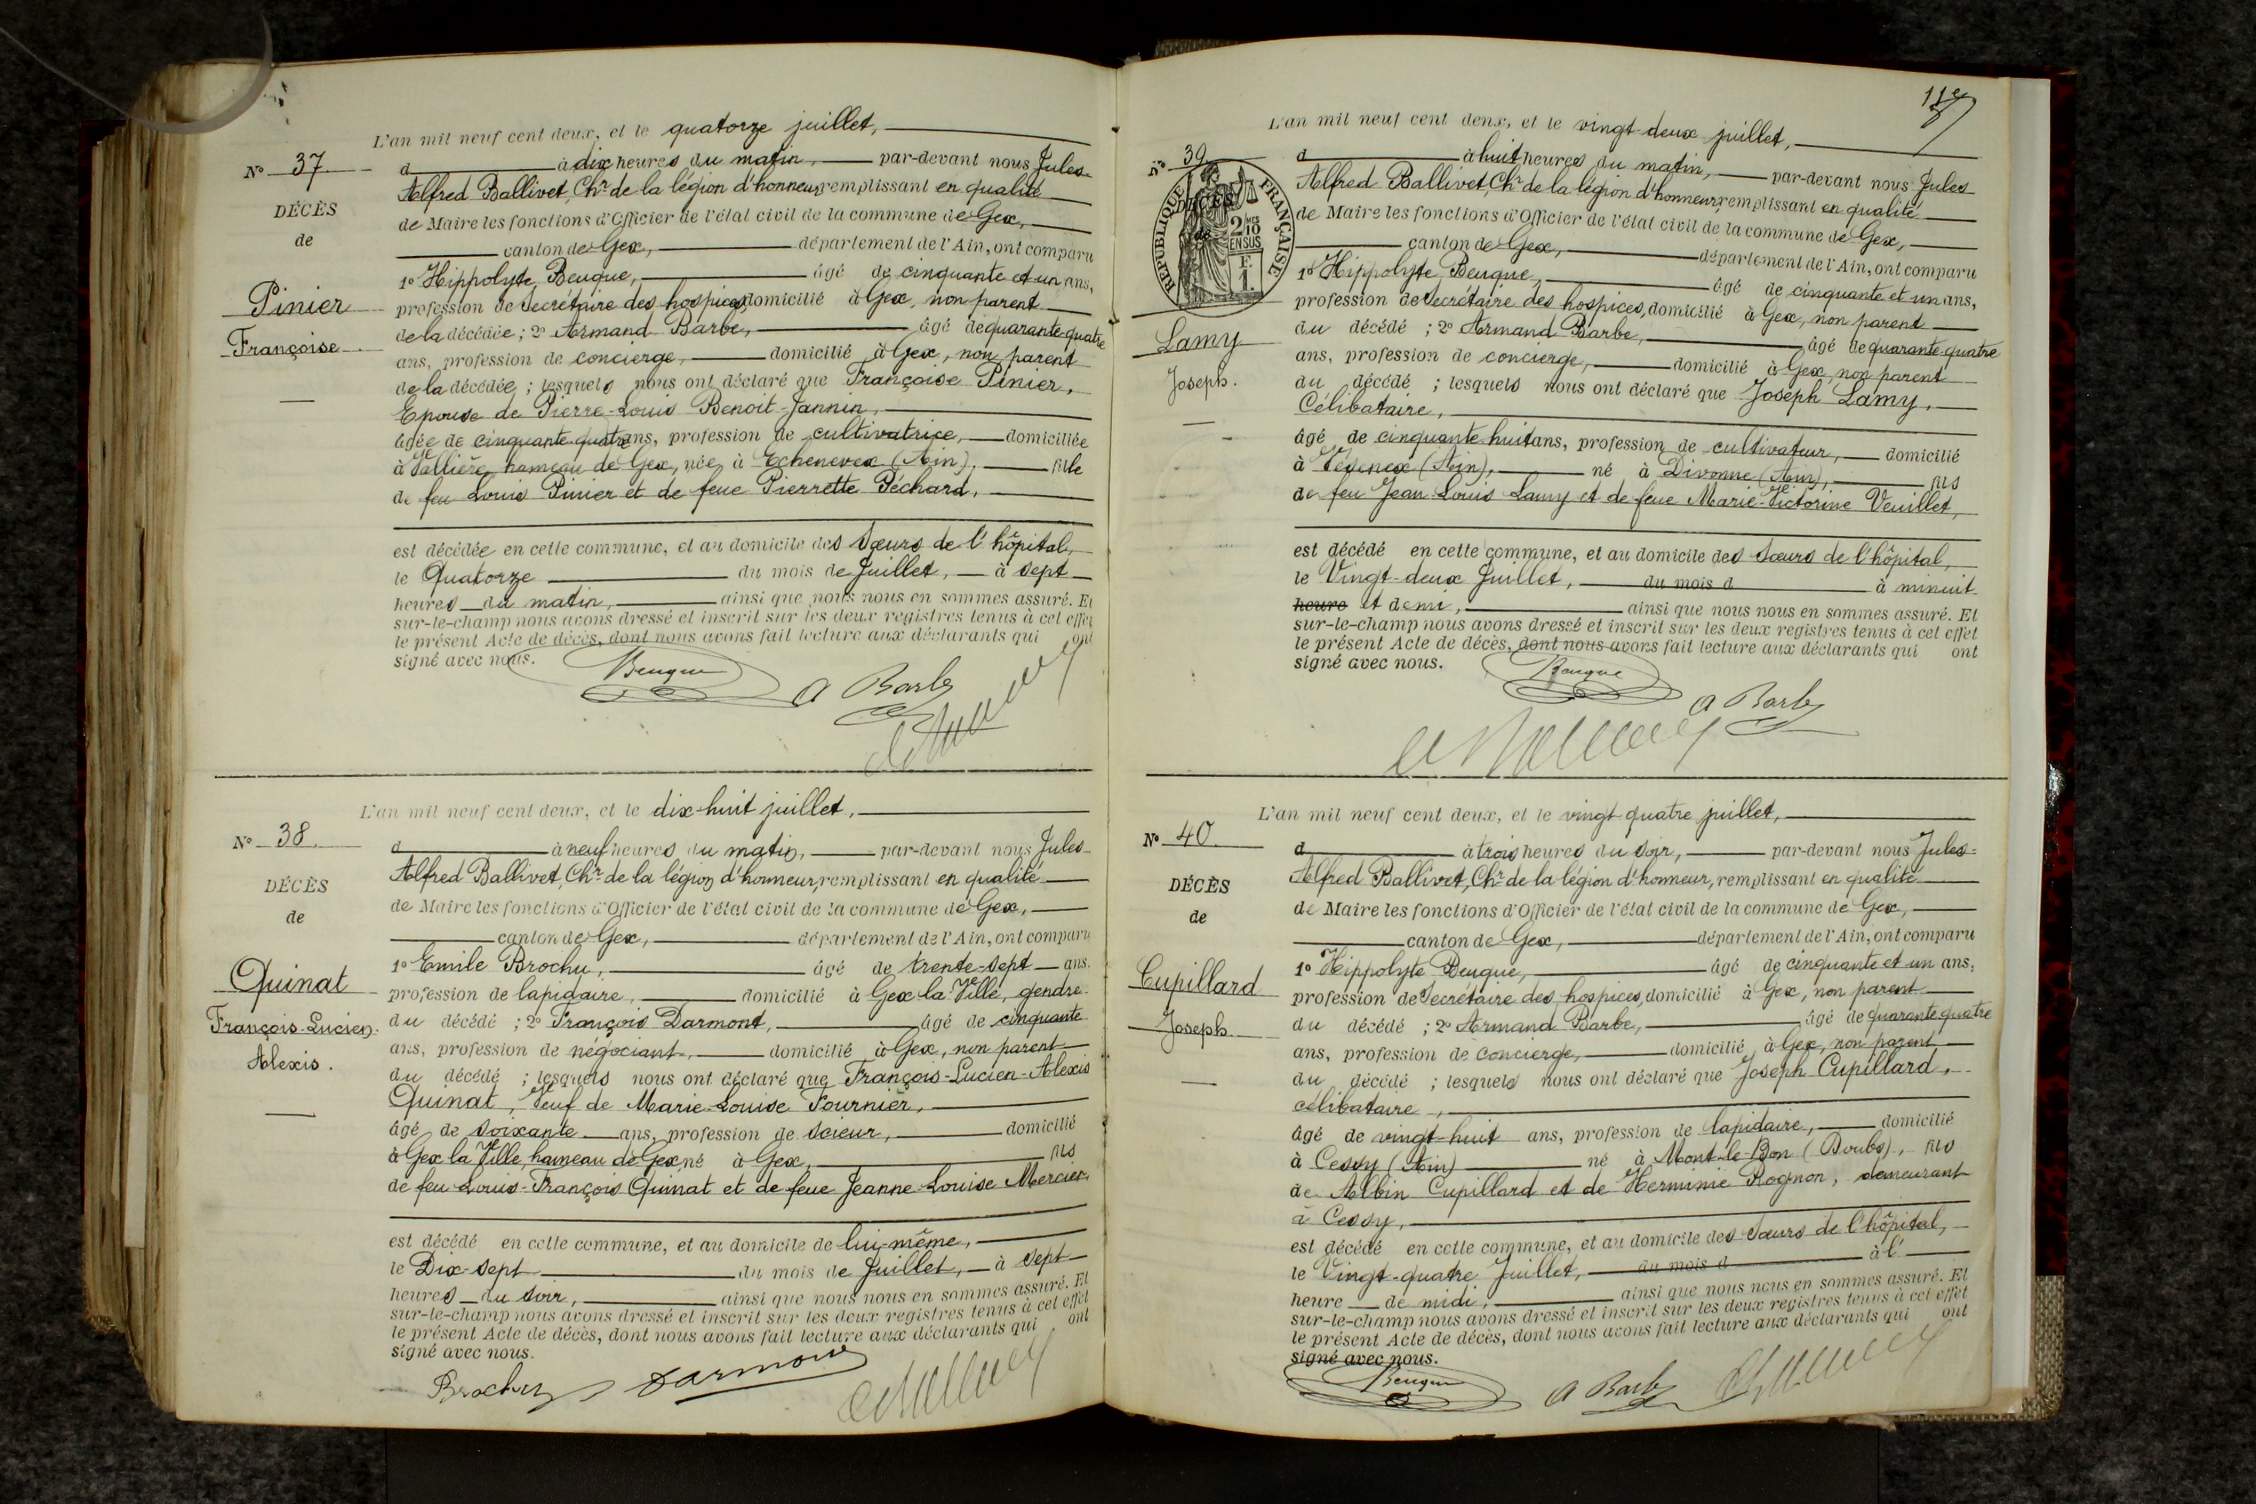 L'an mil neuf cent deux, et le quatorze juillet,
N° 37
d à dix heures du matin, par-devant nous Jules-
Alfred Ballivet, Chr de la légion d'honneur, remplissant en qualité
DÉCÈS
de Maire les fonctions d'Officier de l'état civil de la commune de Gex,
de
canton de Gex, département de l'Ain, ont comparu
1° Hippolyte Beuque, âgé de cinquante et un ans,
Pinier
profession de Secrétaire des hospices, domicilié à Gex, non parent
de la décédée ; 2° Armand Barbe, âgé de quarante-quatre
Françoise
ans, profession de concierge, domicilié à Gex, non parent
de la décédée ; lesquels nous ont déclaré que Françoise Pinier,
Epouse de Pierre-Louis Benoit-Jannin,
âgée de cinquante-quatre ans, profession de cultivatrice, domiciliée
à Tallière, hameau de Gex, née à Echenevex (Ain), fille
de feu Louis Pinier et de feue Pierrette Péchard,
est décédée en cette commune, et au domicile des Sœurs de l'hôpital,
le Quatorze du mois de Juillet, à sept
heures du matin, ainsi que nous nous en sommes assuré. Et
sur-le-champ nous avons dressé et inscrit sur les deux registres tenus à cet effet
le présent Acte de décès, dont nous avons fait lecture aux déclarants qui ont
signé avec nous.
Beuque
A Barbe
L'an mil neuf cent deux, et le dix-huit juillet,
N° 38
d à neuf heures du matin, par-devant nous Jules-
Alfred Ballivet, Chr de la légion d'honneur, remplissant en qualité
DÉCÈS
de Maire les fonctions d'Officier de l'état civil de la commune de Gex,
de
canton de Gex, département de l'Ain, ont comparu
1° Emile Brochu, âgé de trente-sept ans,
Quinat
profession de lapidaire, domicilié à Gex la Ville, gendre
François-Lucien-
du décédé ; 2° François Darmont, âgé de cinquante
ans, profession de négociant, domicilié à Gex, non parent
Alexis.
du décédé ; lesquels nous ont déclaré que François-Lucien-Alexis
Quinat, Veuf de Marie-Louise Fournier,
âgé de soixante ans, profession de scieur, domicilié
à Gex la Ville, hameau de Gex né à Gex, fils
de feu Louis-François Quinat et de feue Jeanne-Louise Mercier,
est décédé en cette commune, et au domicile de lui-même,
le Dix-sept du mois de Juillet, à sept
heures du soir, ainsi que nous nous en sommes assuré. Et
sur-le-champ nous avons dressé et inscrit sur les deux registres tenus à cet effet
le présent Acte de décès, dont nous avons fait lecture aux déclarants qui ont
signé avec nous.
Brochu
Darmont
L'an mil neuf cent deux, et le vingt-deux juillet,
N° 39
d à huit heures du matin, par-devant nous Jules
Alfred Ballivet, Chr de la légion d'honneur, remplissant en qualité
DÉCÈS
de
RÉPUBLIQUE FRANÇAISE
2 MES 10 EN SUS
F. 1.
de Maire les fonctions d'Officier de l'état civil de la commune de Gex,
canton de Gex, département de l'Ain, ont comparu
1° Hippolyte Beuque, âgé de cinquante et un ans,
profession de Secrétaire des hospices, domicilié à Gex, non parent
Lamy
du décédé ; 2° Armand Barbe, âgé de quarante-quatre
ans, profession de concierge, domicilié à Gex, non parent
Joseph.
du décédé ; lesquels nous ont déclaré que Joseph Lamy,
Célibataire,
âgé de cinquante-huit ans, profession de cultivateur, domicilié
à Vésenex (Ain), né à Divonne (Ain), fils
de feu Jean-Louis Lamy et de feue Marie-Victorine Veuillet,
est décédé en cette commune, et au domicile des Sœurs de l'hôpital,
le Vingt-deux Juillet, du mois d à minuit
heure et demi, ainsi que nous nous en sommes assuré. Et
sur-le-champ nous avons dressé et inscrit sur les deux registres tenus à cet effet
le présent Acte de décès, dont nous avons fait lecture aux déclarants qui ont
signé avec nous.
Beuque
A Barbe
L'an mil neuf cent deux, et le vingt quatre juillet,
N° 40
d à trois heures du soir, par-devant nous Jules-
Alfred Ballivet, Chr de la légion d'honneur, remplissant en qualité
DÉCÈS
de Maire les fonctions d'Officier de l'état civil de la commune de Gex,
de
canton de Gex, département de l'Ain, ont comparu
1° Hippolyte Beuque, âgé de cinquante et un ans,
Cupillard
profession de Secrétaire des hospices, domicilié à Gex, non parent
Joseph
du décédé ; 2° Armand Barbe, âgé de quarante quatre
ans, profession de concierge, domicilié à Gex, non parent
du décédé ; lesquels nous ont déclaré que Joseph Cupillard,
célibataire,
âgé de vingt-huit ans, profession de lapidaire, domicilié
à Cessy (Ain) né à Mont-le-Bon (Doubs), fils
de Albin Cupillard et de Herminie Rognon, demeurant
à Cessy,
est décédé en cette commune, et au domicile des Sœurs de l'hôpital,
le Vingt-quatre Juillet, du mois d à l'
heure de midi, ainsi que nous nous en sommes assuré. Et
sur-le-champ nous avons dressé et inscrit sur les deux registres tenus à cet effet
le présent Acte de décès, dont nous avons fait lecture aux déclarants qui ont
signé avec nous.
Beuque
A Barbe